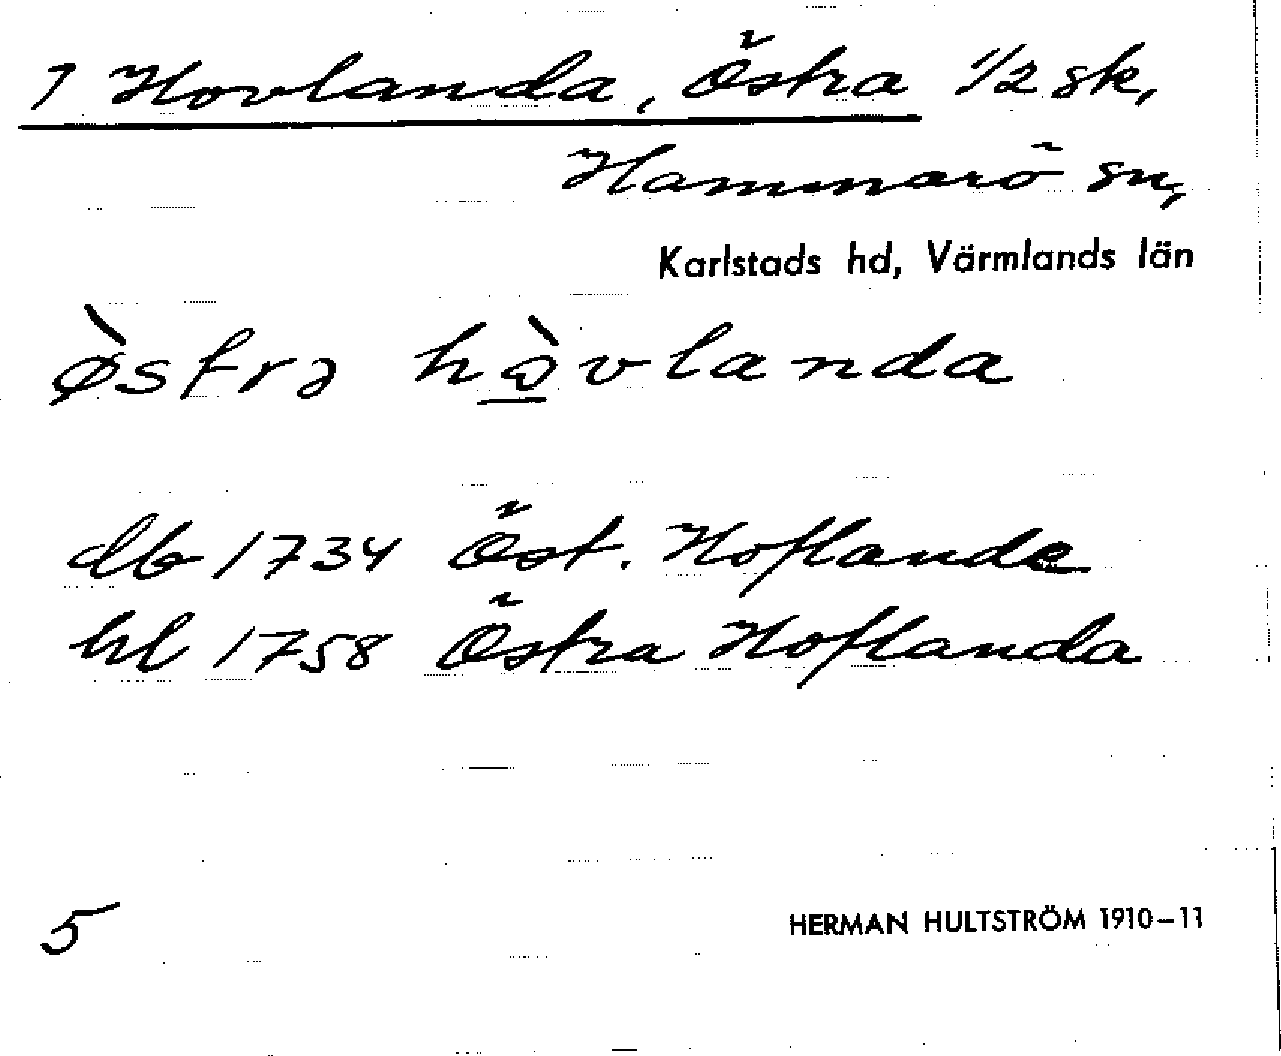 7 Hovlanda, Östra 1/2 sk,
Hammarö sn,
Karlstads hd, Värmlands län
ø̀strə hò̱vlanda
db 1734 Öst. Hoflande
hl 1758 Östra Hoflanda
5
HERMAN HULTSTRÖM 1910–11